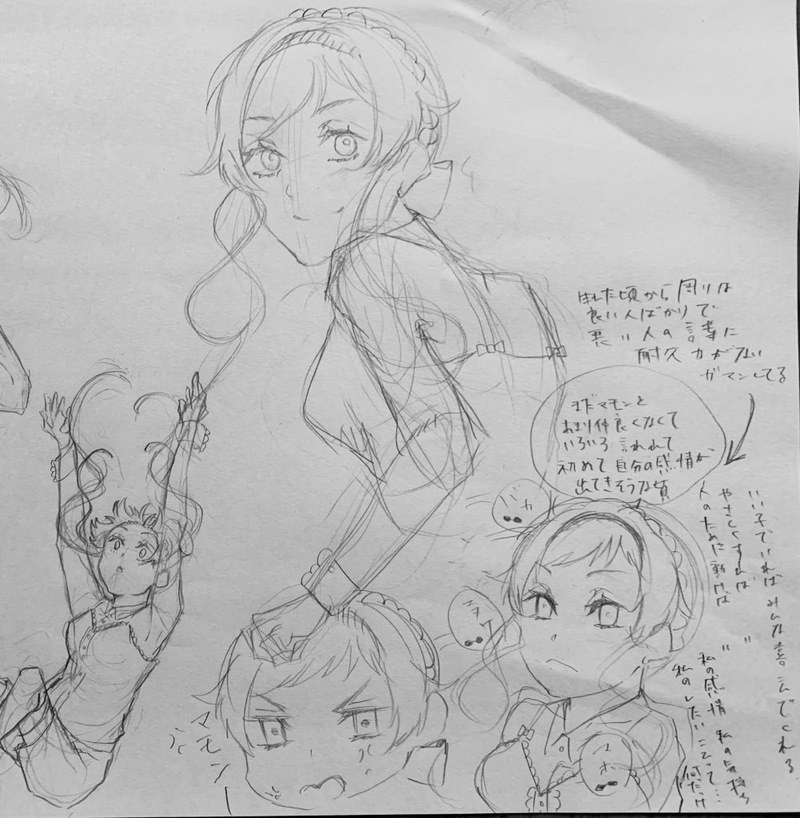 出した頃から周りは
良い人ばかりで
悪い人の言葉に
耐久力がない
ガマンしてる
まだマモンと
あまり仲良くなくて
いろいろ言われて
初めて自分の感情が
出てきそうな頃
いい子でいればみんな喜んでくれる
やさしくすれば 〃
人のために動けば 〃
私の感情 私の気持ち
私のしたいことって…何だっけ
バカ
マヌケ
アホ
マモンー